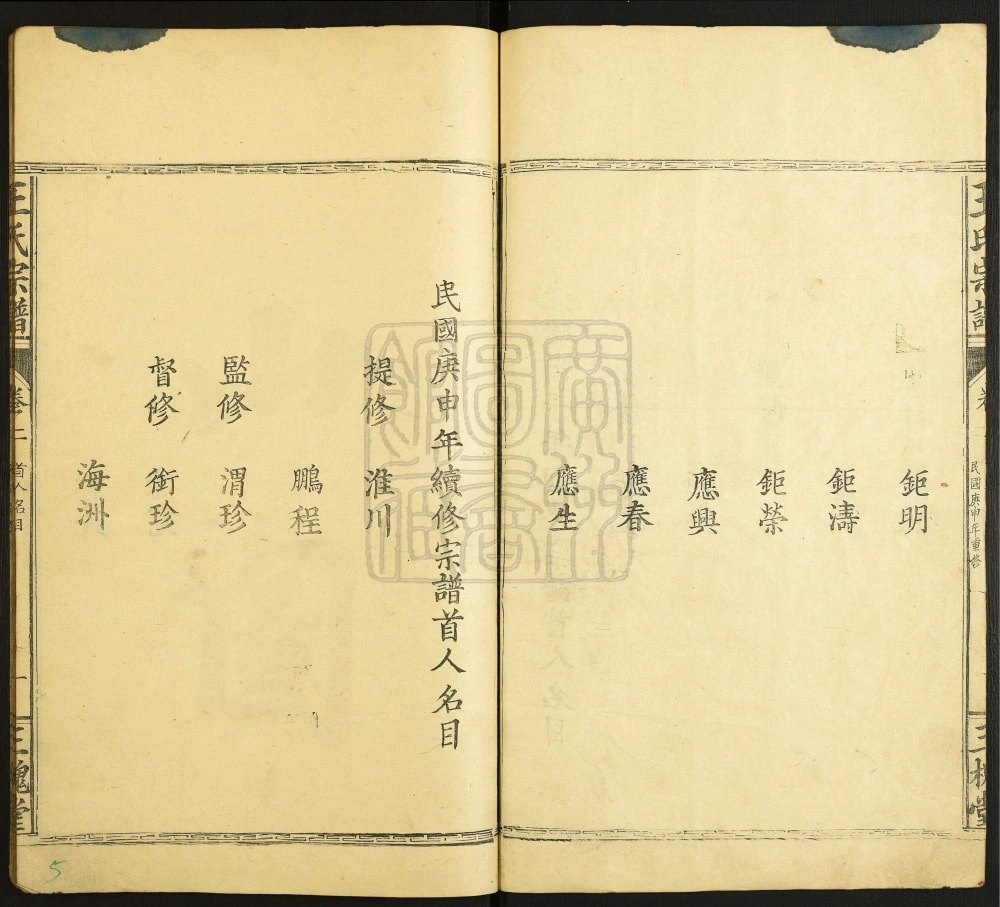 王氏宗譜
卷
民國庚申年重修
三槐堂
鉅明
鉅濤
鉅榮
應興
應春
應生
民國庚申年續修宗譜首人名目
提修 淮川
鵬程
監修 渭珍
督修 銜珍
海洲
王氏宗譜
卷二
首人名目
一
三槐堂
5